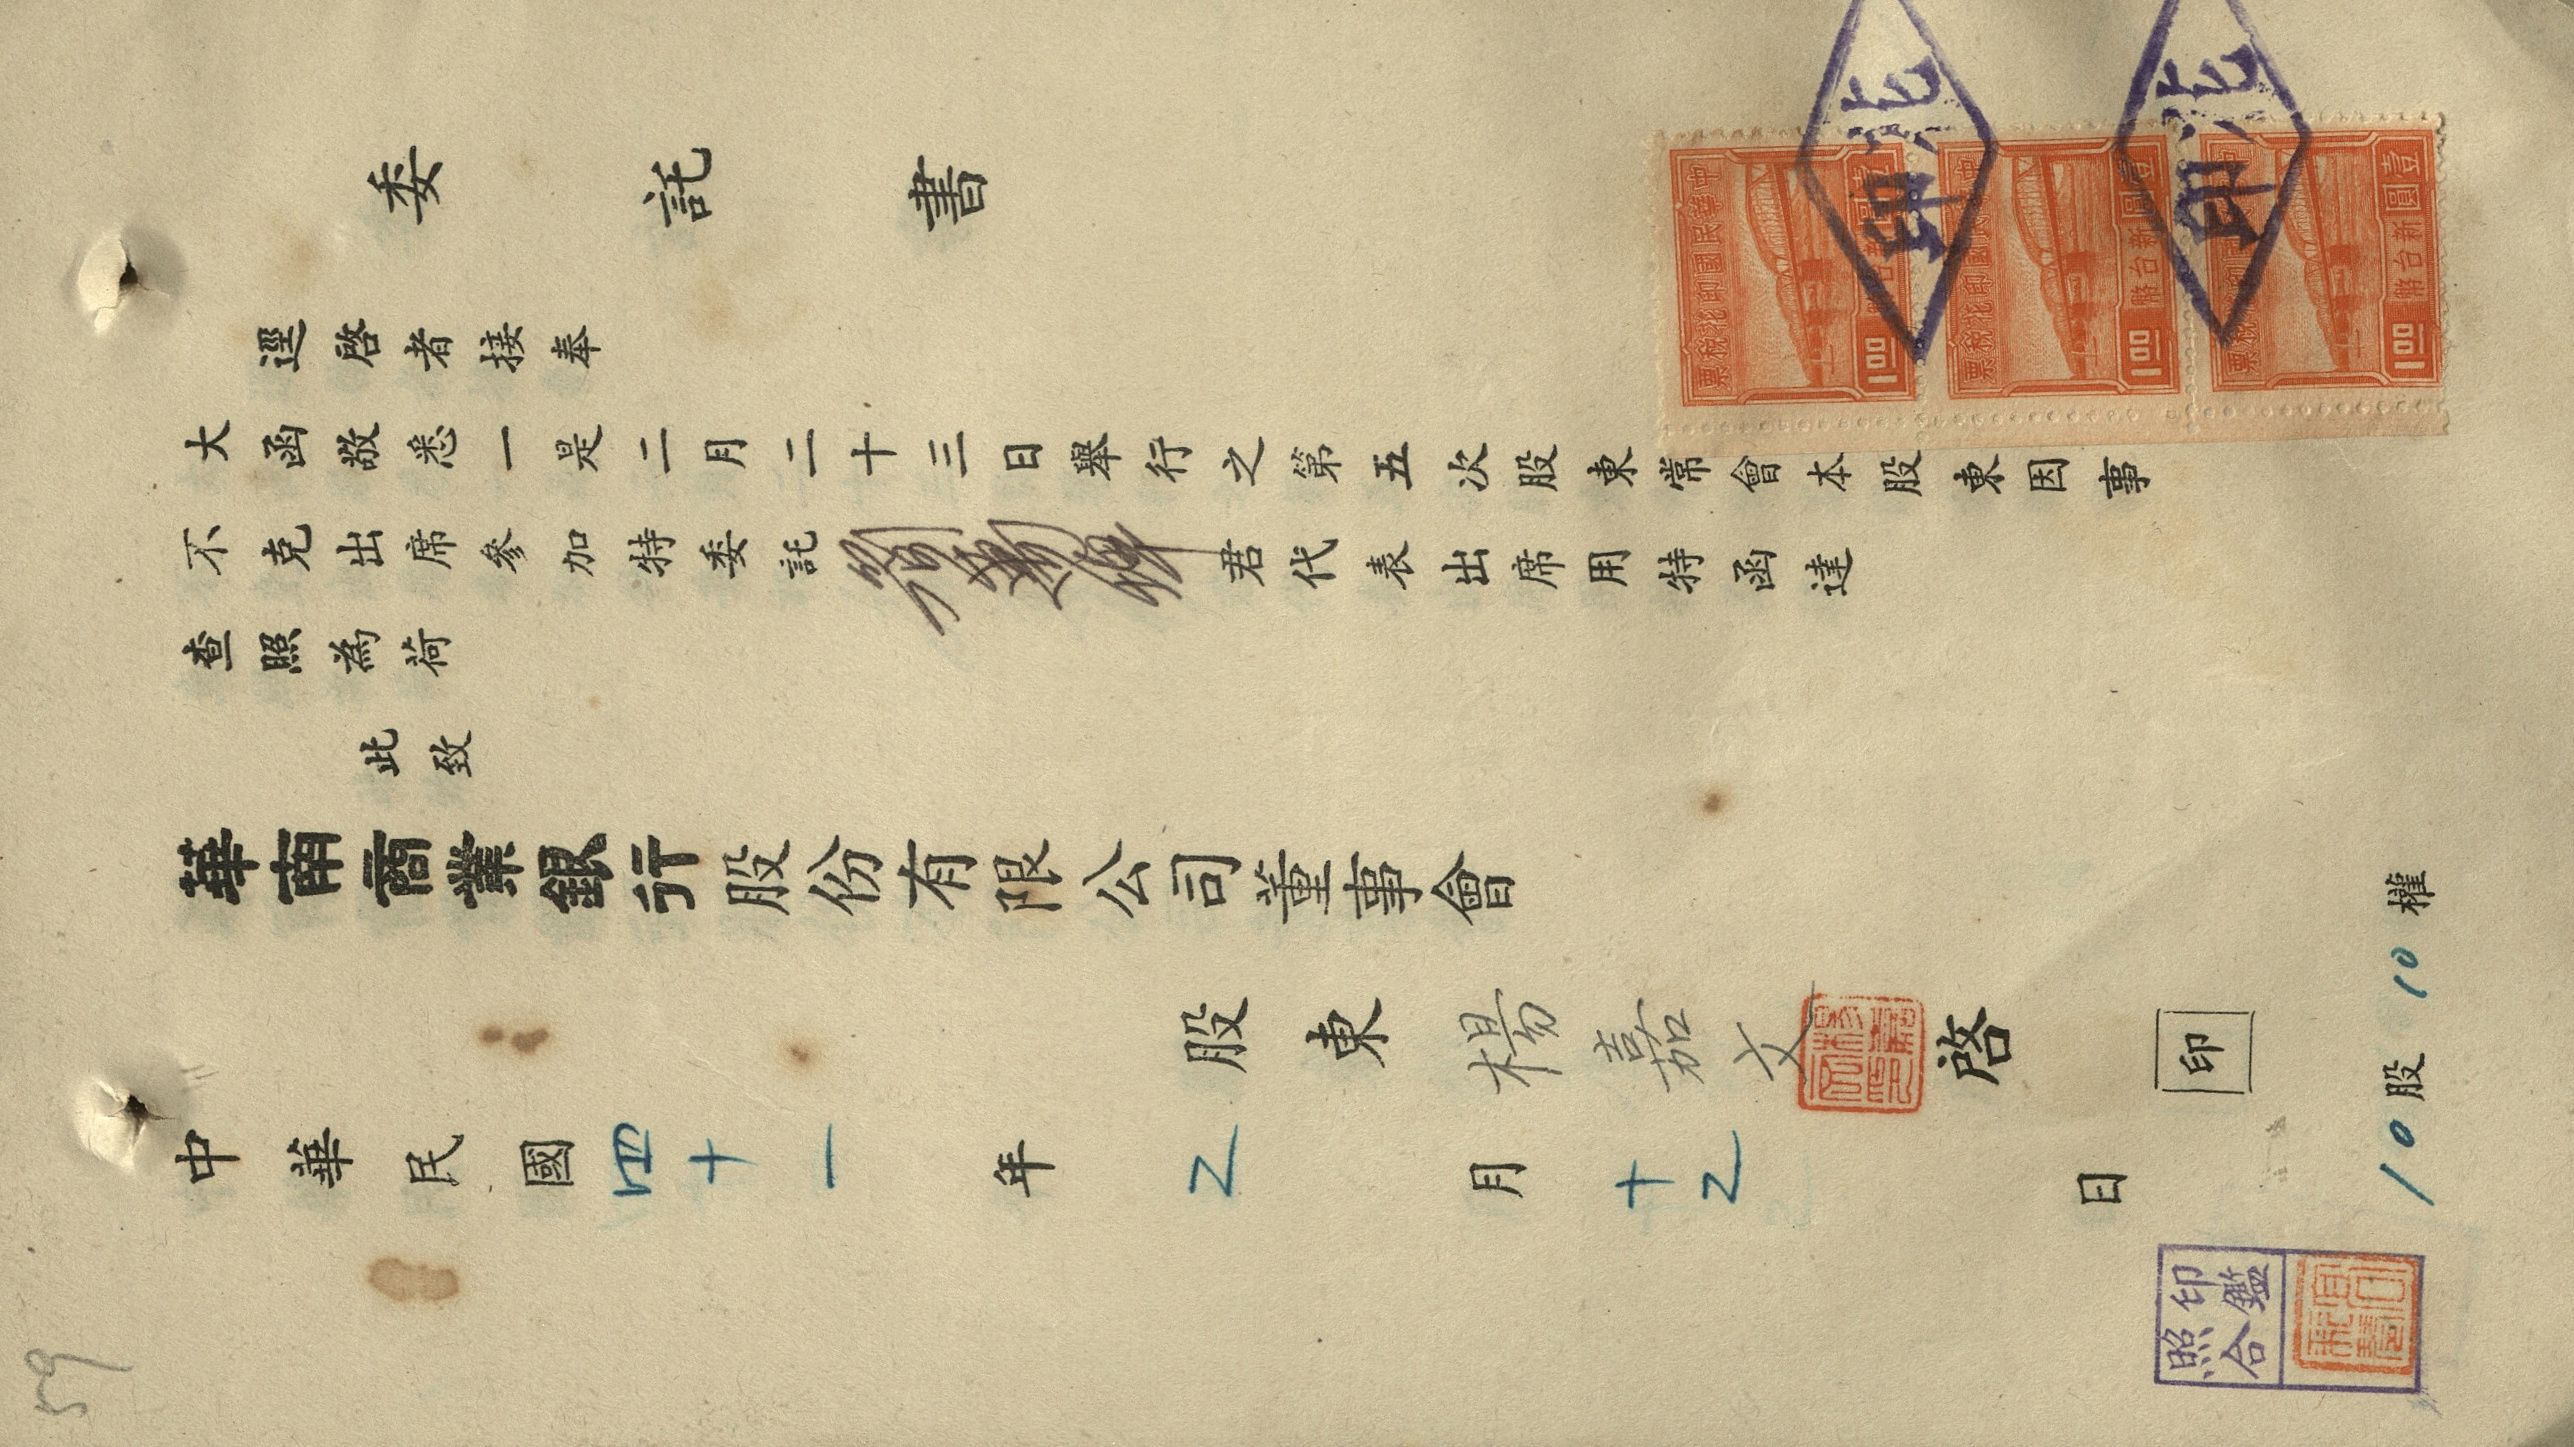 委託書
逕啓者接奉
大函敬悉一是二月二十三日舉行之第五次股東常會本股東因事
不克出席參加特委託 君代表出席用特函達
查照為荷
此致
華南商業銀行股份有限公司董事會
股東 楊嘉文 啓 印
中華民國四十一年2月十2日
10股 10權
印鑑
照合
59
中華民國印花稅票
壹圓
新台幣
1.00
中華民國印花稅票
壹圓
新台幣
1.00
印花稅票
壹圓
新台幣
1.00
印花
印花